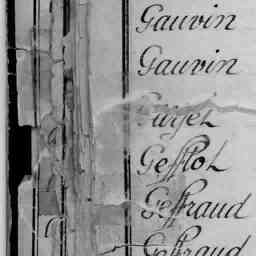 Gauvin
Gauvin
Gefflot
Geffraud
Geffraud